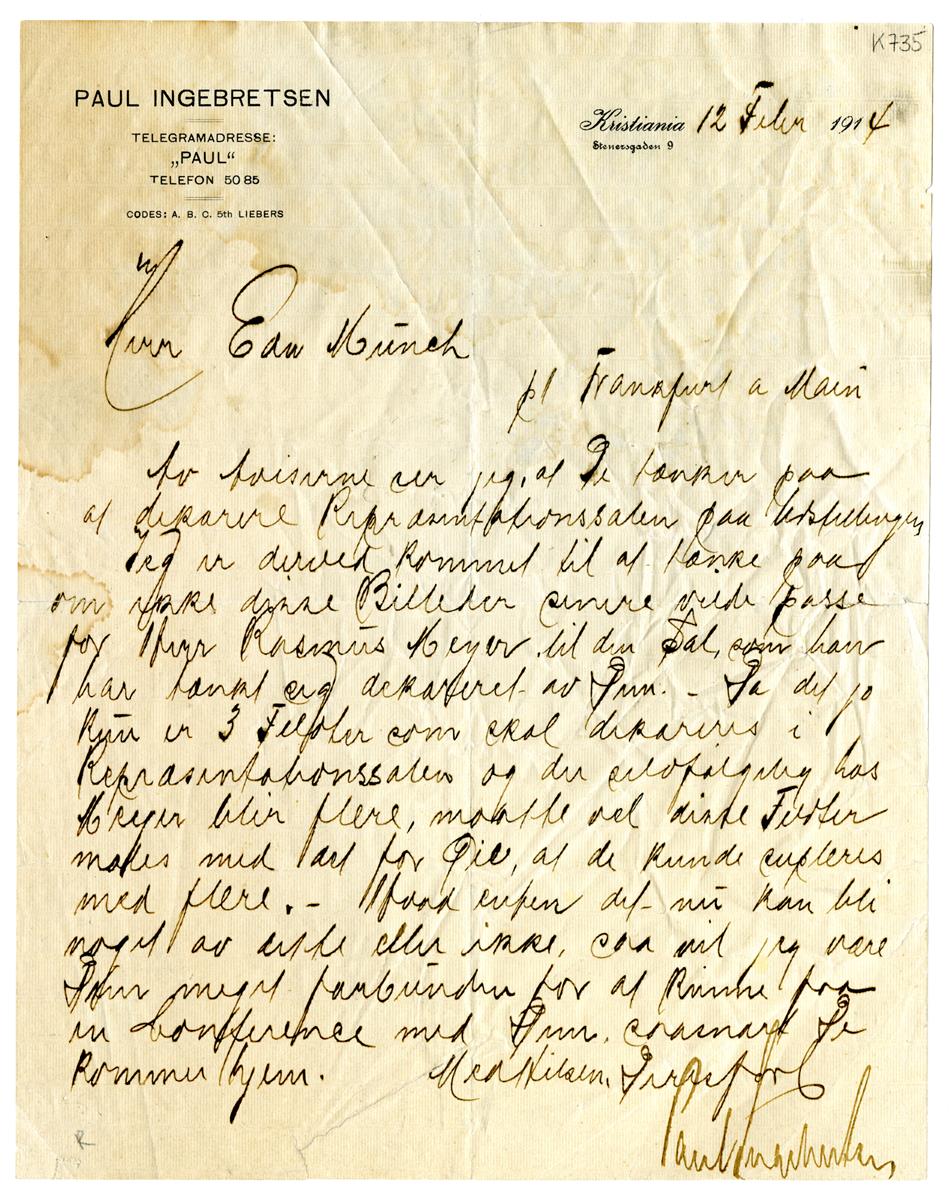 K735
PAUL INGEBRETSEN
TELEGRAMADRESSE:
„PAUL“
TELEFON 50 85
CODES: A. B. C. 5th LIEBERS
Kristiania 12 Febr 1914
Stenersgaden 9
Herr Edv Munch
pt Frankfurt a Main
Av Aviserne ser jeg, at De tænker paa
at dekorere Repræsentationssalen paa Udstillingen,
Jeg er derved kommet til at tænke paa
om ikke disse Billeder senere vilde passe
for Herr Rasmus Meyer til den Sal, som han
har tænkt sig dekoreret av Dem. – Da det jo
kun er 3 Felter som skal dekoreres i
Repræsentationssalen og der selvfølgelig hos
Meyer blir flere, maatte vel disse Felter
males med det for Øie, at de kunde supleres
med flere. – Hvad enten det nu kan bli
noget av dette eller ikke, saa vil jeg være
Dem meget forbunden for at kunne faa
en Conference med Dem, saasnart De
kommer hjem. Med Hilsen,
Paul Ingebretsen
R